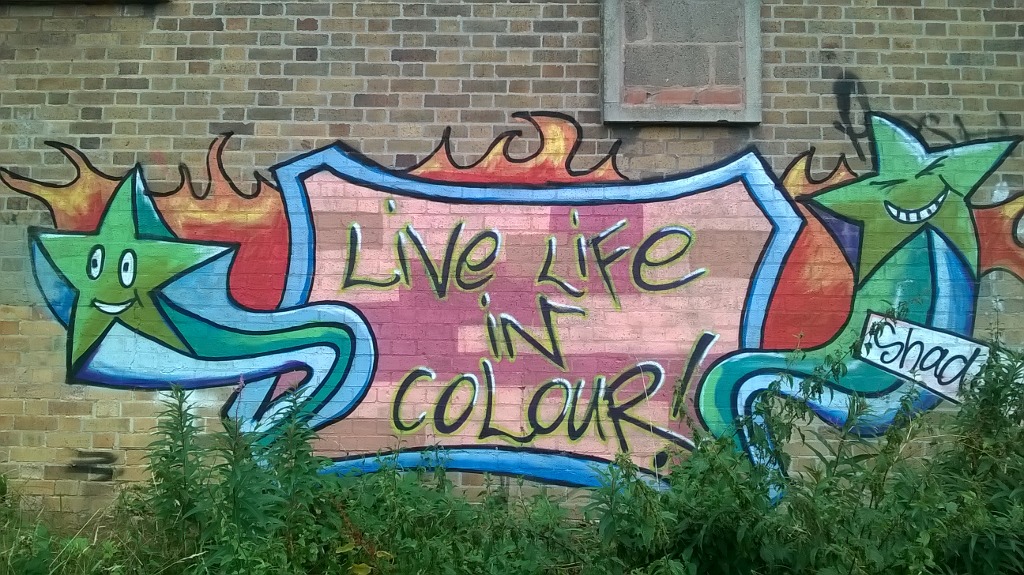 LiVe LiFe
iN
COLOUR!
#Shad